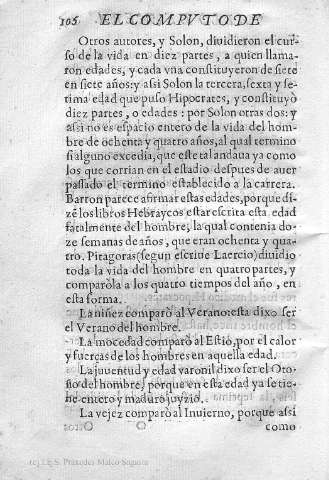 106 EL COMPVTO DE
Otros autores, y Solon, diuidieron el cur-
so de la vida en diez partes, a quien llama-
ron edades, y cada vna constituyeron de siete
en siete años: y assi Solon la tercera, sexta y se-
tima edad que puso Hipocrates, y constituyò
diez partes, o edades: por Solon otras dos: y
assi no es espacio entero de la vida del hom-
bre de ochenta y quatro años, al qual termino
si alguno excedia, que este tal andaua ya como
los que corrian en el estadio despues de auer
passado el termino establecido a la carrera.
Barron parece afirmar estas edades, porque di-
zè los libros Hebraycos estar escrita esta edad
fatalmente del hombre, la qual contenia do-
ze semanas de años, que eran ochenta y qua-
tro. Pitagoras (segun escriue Laercio) diuidio
toda la vida del hombre en quatro partes, y
comparòla a los quatro tiempos del año, en
esta forma.
La niñez comparò al Verano: esta dixo ser
el Verano del hombre.
La mocedad comparò al Estio, por el calor
y fuerças de los hombres en aquella edad.
La juuentud y edad varonil dixo ser el Oto-
ño del hombre, porque en esta edad ya se tie-
ne entero y maduro juyzio.
La vejez comparò al Inuierno, porque assi
como
(c) I.E.S. Práxedes Mateo Sagasta